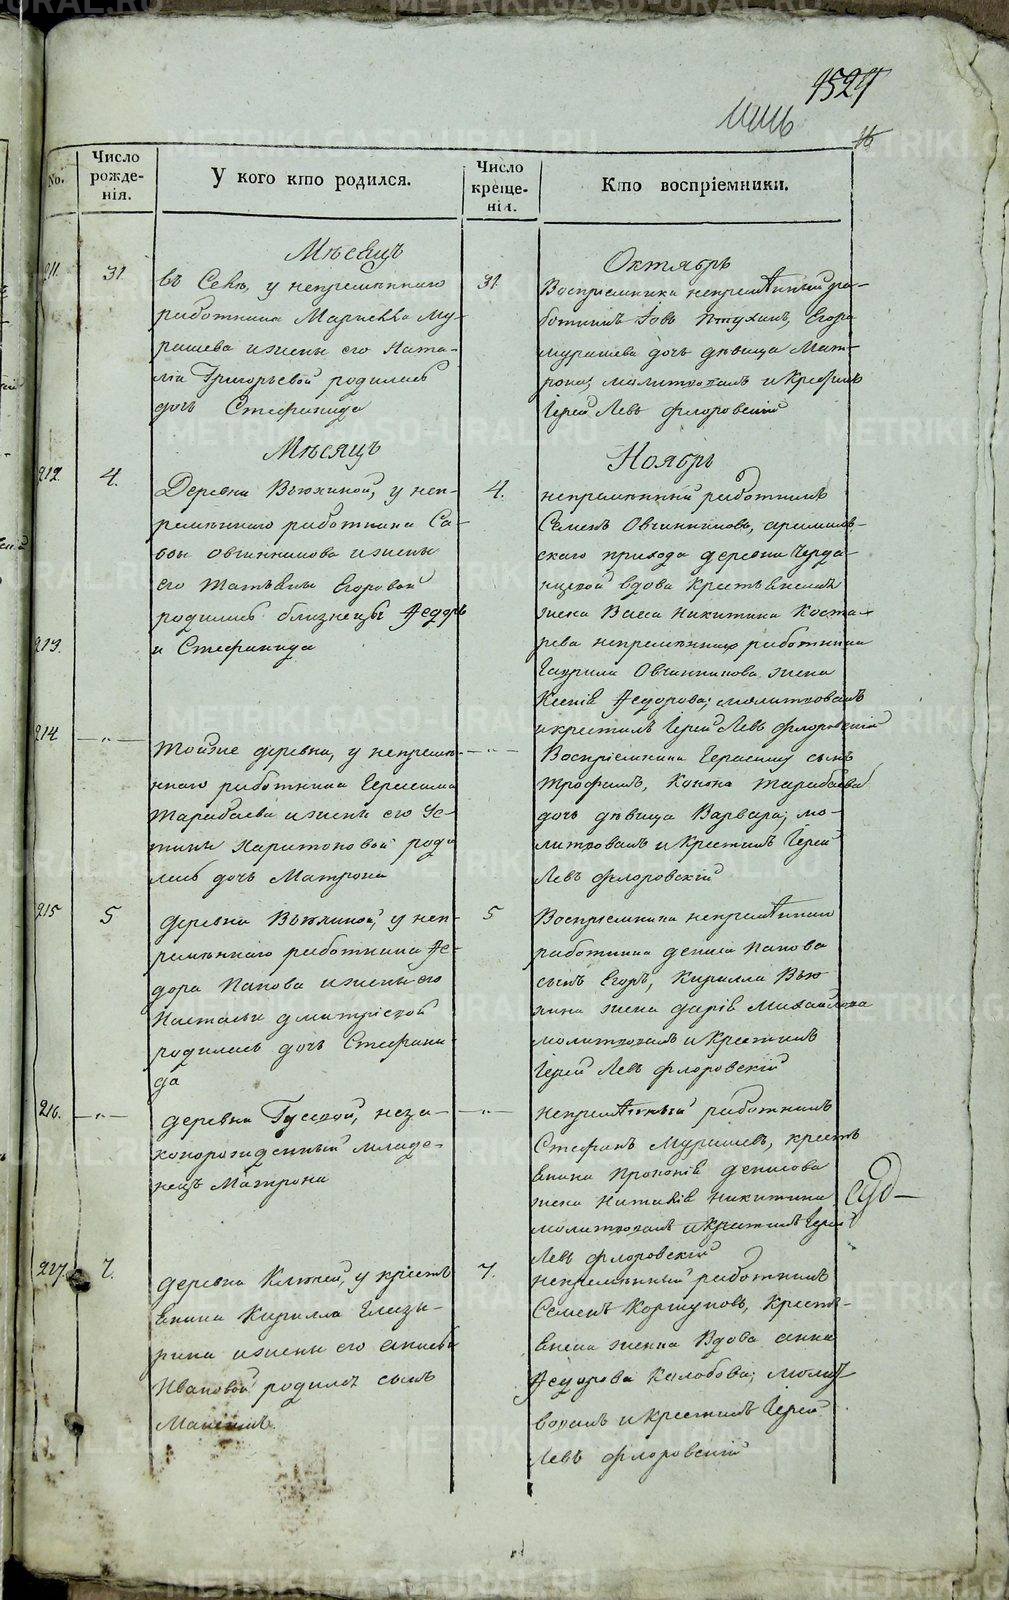 1524
16
No.
Число рожде-нія.
У кого кто родился.
Число креще-нія.
Кто воспріемники.
Мѣсяцъ
Октябрь
211.
31
въ Селѣ, у непремѣннаго
работника
Му-
рашева и жены его Ната-
ліи Григорьевой родилась
дочь Стефанида
31
Воспріемники непремѣнный ра-
ботникъ Іовъ Пѣтухинъ, Егора
Мурашева дочь дѣвица Мат-
рона; молитвовалъ и крестилъ
Іерей Левъ Флоровскій
Мѣсяцъ
Ноябрь
212.
4.
Деревни Вьюхиной, у неп-
ремѣннаго работника Са-
вы Овчинникова и жены
его Татьяны Егоровой
родились близнецы Ѳедоръ
213.
и Стефанида
4.
непремѣнный работникъ
Семенъ Овчинниковъ, арамиль-
скаго прихода деревни
вдова крестьянская
жена Васса Никитина Коста-
рева непремѣннаго работника
Гаврила Овчинникова жена
Ксенія Ѳедорова; молитвовалъ
и крестилъ Іерей Левъ Флоровскій
214
—„—
Тойже деревни, у непремѣ-
ннаго работника Герасима
Тарабаева и жены его Ус-
тиньи Харитоновой роди
лась дочь Матрона
—„—
Воспріемники Герасима сынъ
Трофимъ, Конона Тарабаева
дочь дѣвица Варвара; мо-
литвовалъ и крестилъ Іерей
Левъ Флоровскій
215
5
деревни Вьюхиной, у неп-
ремѣннаго работника Ѳе-
дора Папова и жены его
Натальи Дмитріевой
родилась дочь Стефани-
да
5
Воспріемники непремѣннаго
работника Дениса Папова
сынъ Егоръ, Кирилла Вью
хина жена Дарія Михайлова
молитвовалъ и крестилъ
Іерей Левъ Флоровскій
216.
—„—
деревни Гусевой, неза-
коннорожденный младе-
нецъ Матрона
—„—
Непремѣнный работникъ
Стефанъ Мурашевъ, кресть
янина Прокопія Денисова
жена Наталія Никитина
молитвовалъ и крестилъ Іерей
Левъ Флоровскій
217.
7.
деревни Ключей, у кресть
янина Кирилла
и жены его
Ивановой родился сынъ
7.
непремѣнный работникъ
Семенъ Коршуновъ, кресть-
янска женка вдова Анна
Ѳедорова Колобова; молит
вовалъ и крестилъ Іерей
Левъ Флоровскій